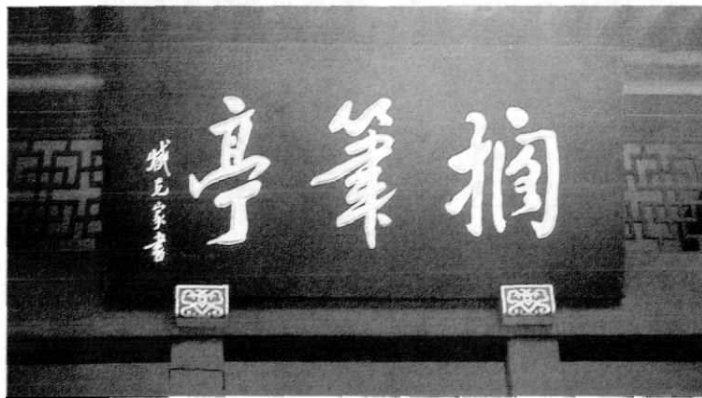 擱筆亭
臧克家書